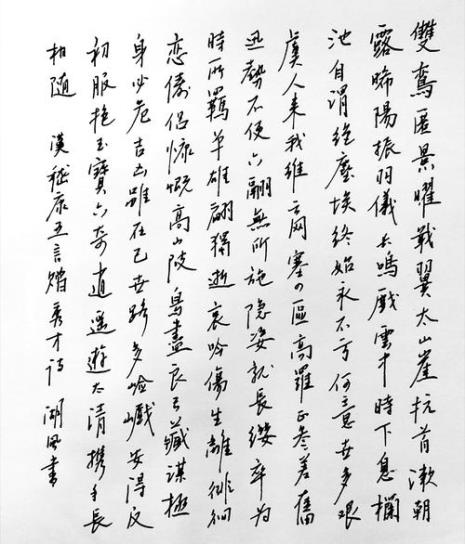 雙鸞匿景曜戢翼太山崖抗首漱朝
露晞陽振羽儀長鳴戲雲中時下息欄
池自谓绝塵埃终始永不亏何意世多艰
虞人来我维云网塞四區高羅正参差奮
迅势不便六翮無所施隐姿就長缨卒为
時所羈单雄翩獨逝哀吟傷生離徘徊
恋儔侣慷慨高山陂鳥盡良弓藏謀極
身必危吉凶雖在己世路多嶮巇安得反
初服抱玉寶六奇逍遥遊太清携手長
相随 漢嵇康五言赠秀才诗 湖风書